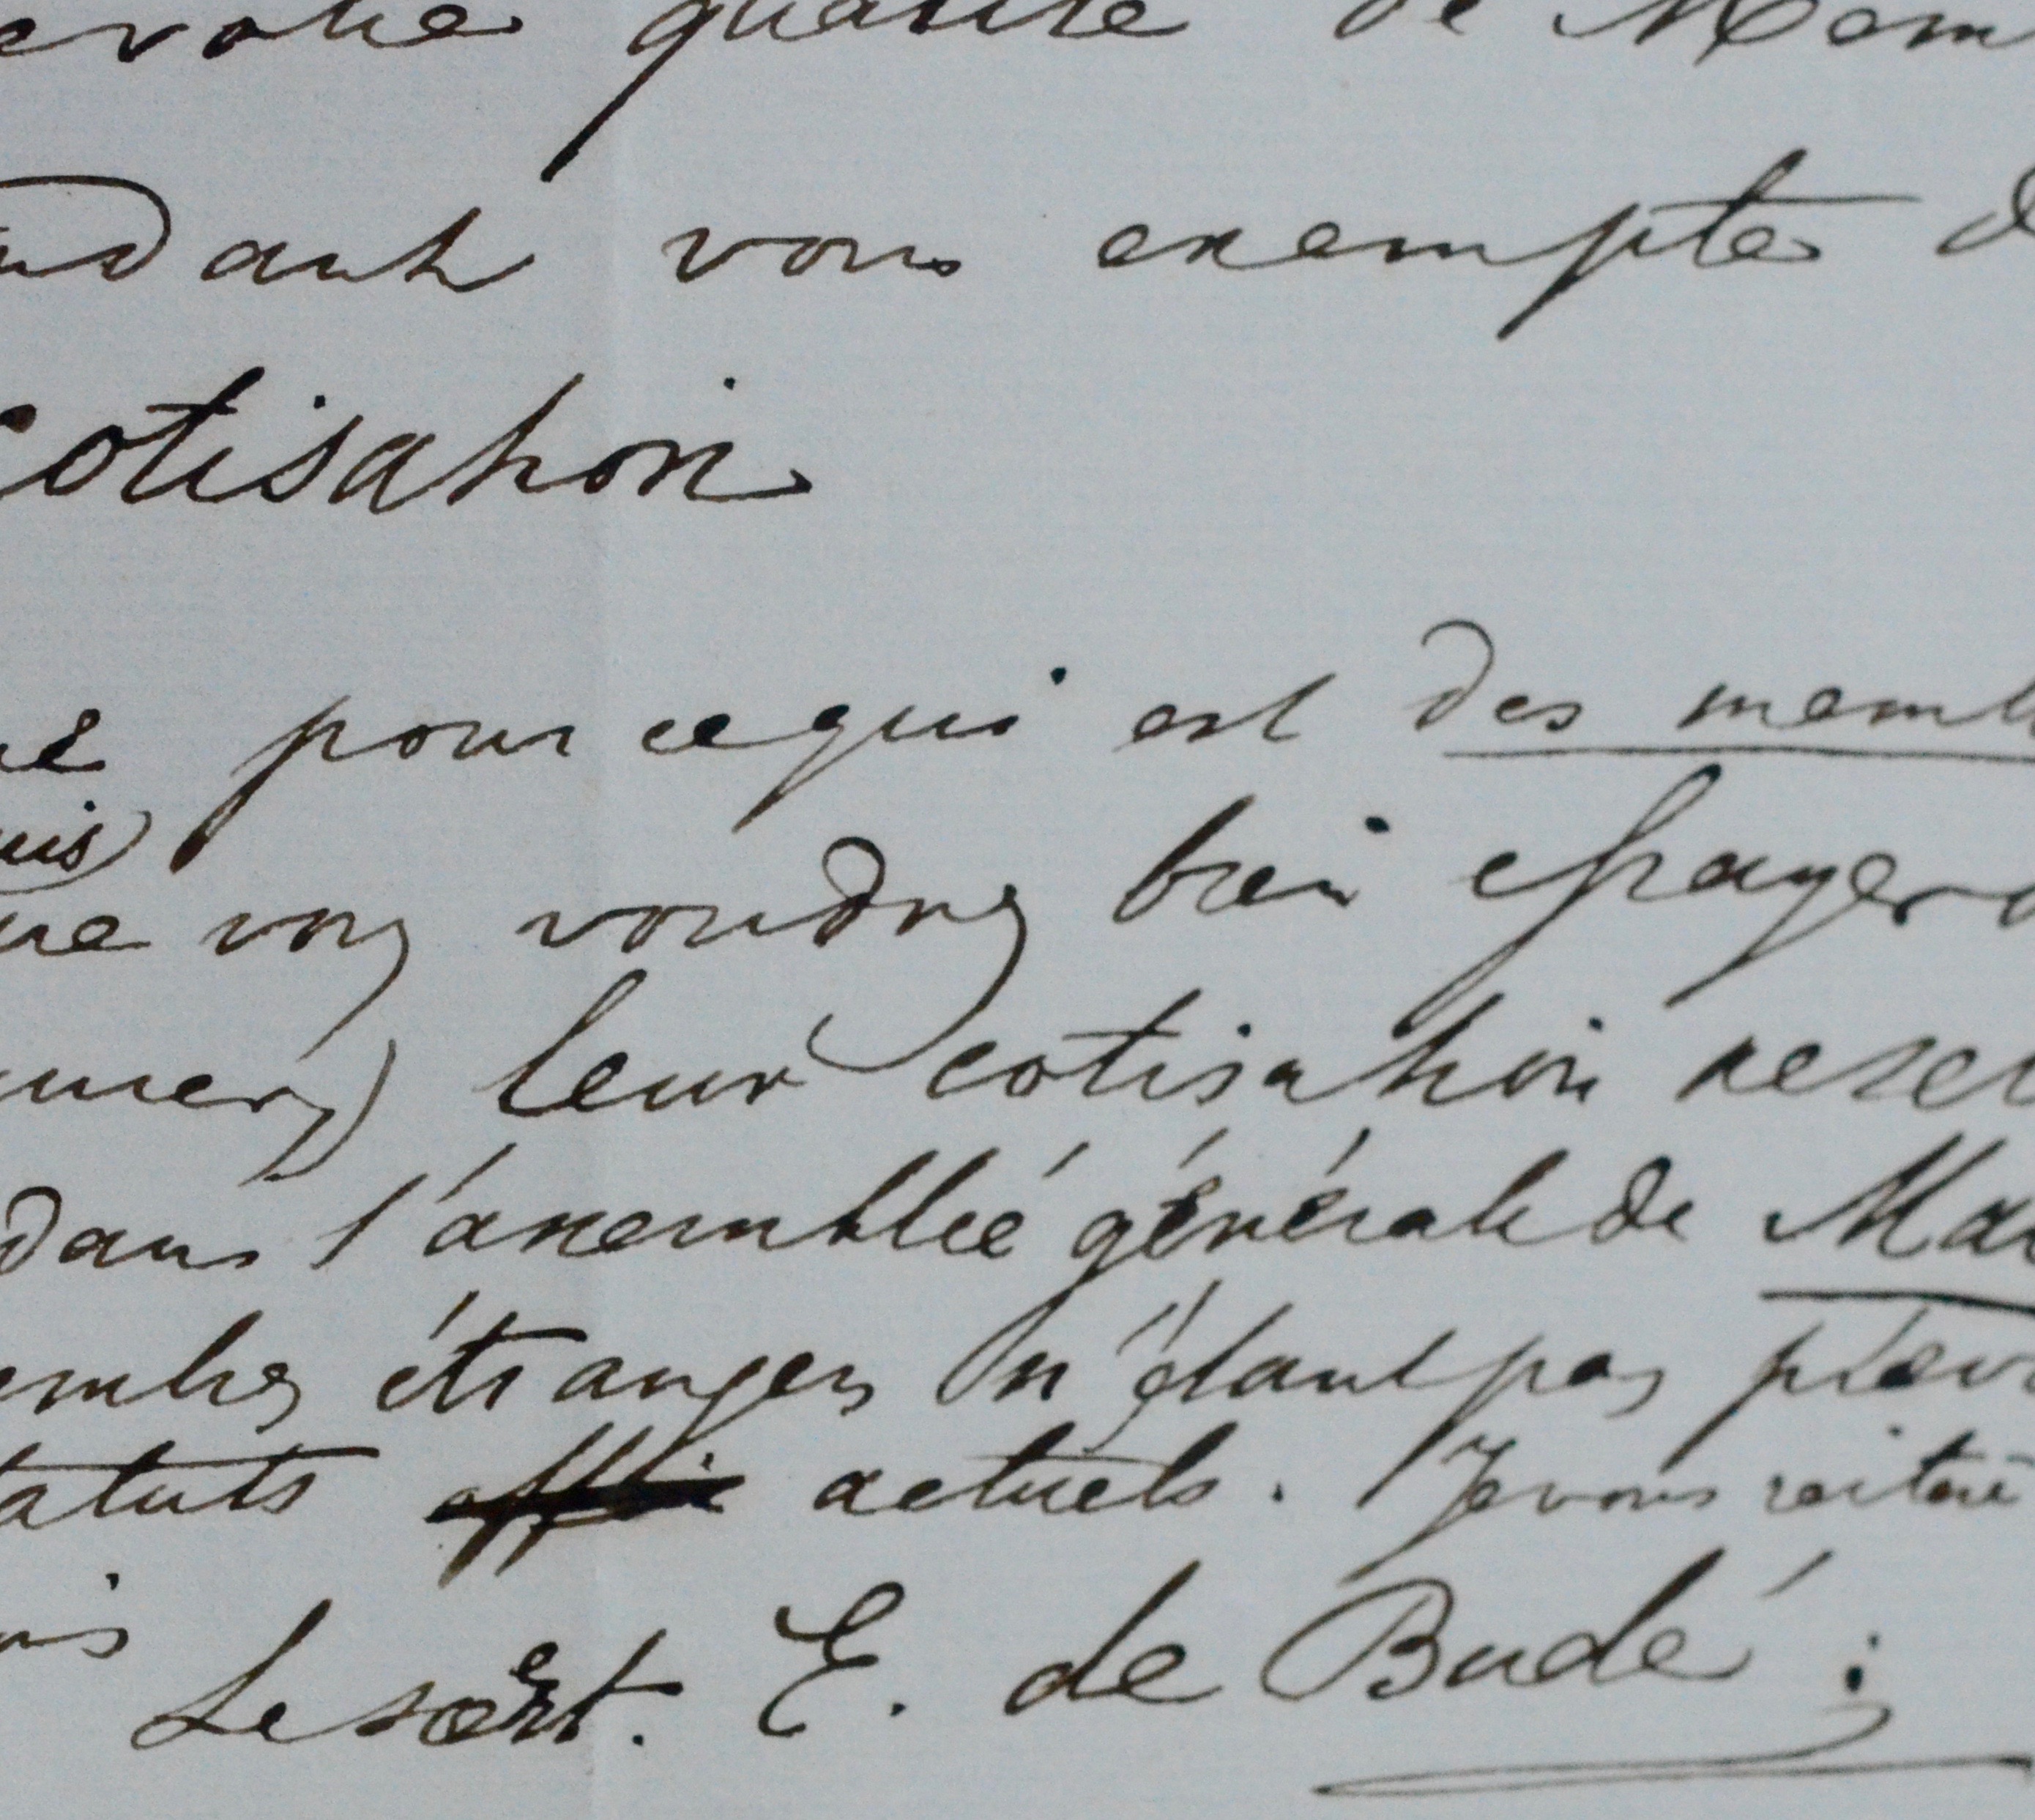 votre qualité de Mem
ndant vous exempte d
cotisation
pour ce qui est des memb
uis)
que vous voudrez bien
leur cotisation
dans l'assemblée générale de Ma
embres étrangers n'étant pas prév
tatuts actuels. Je vous réitère
Le secrt. E. de Budé